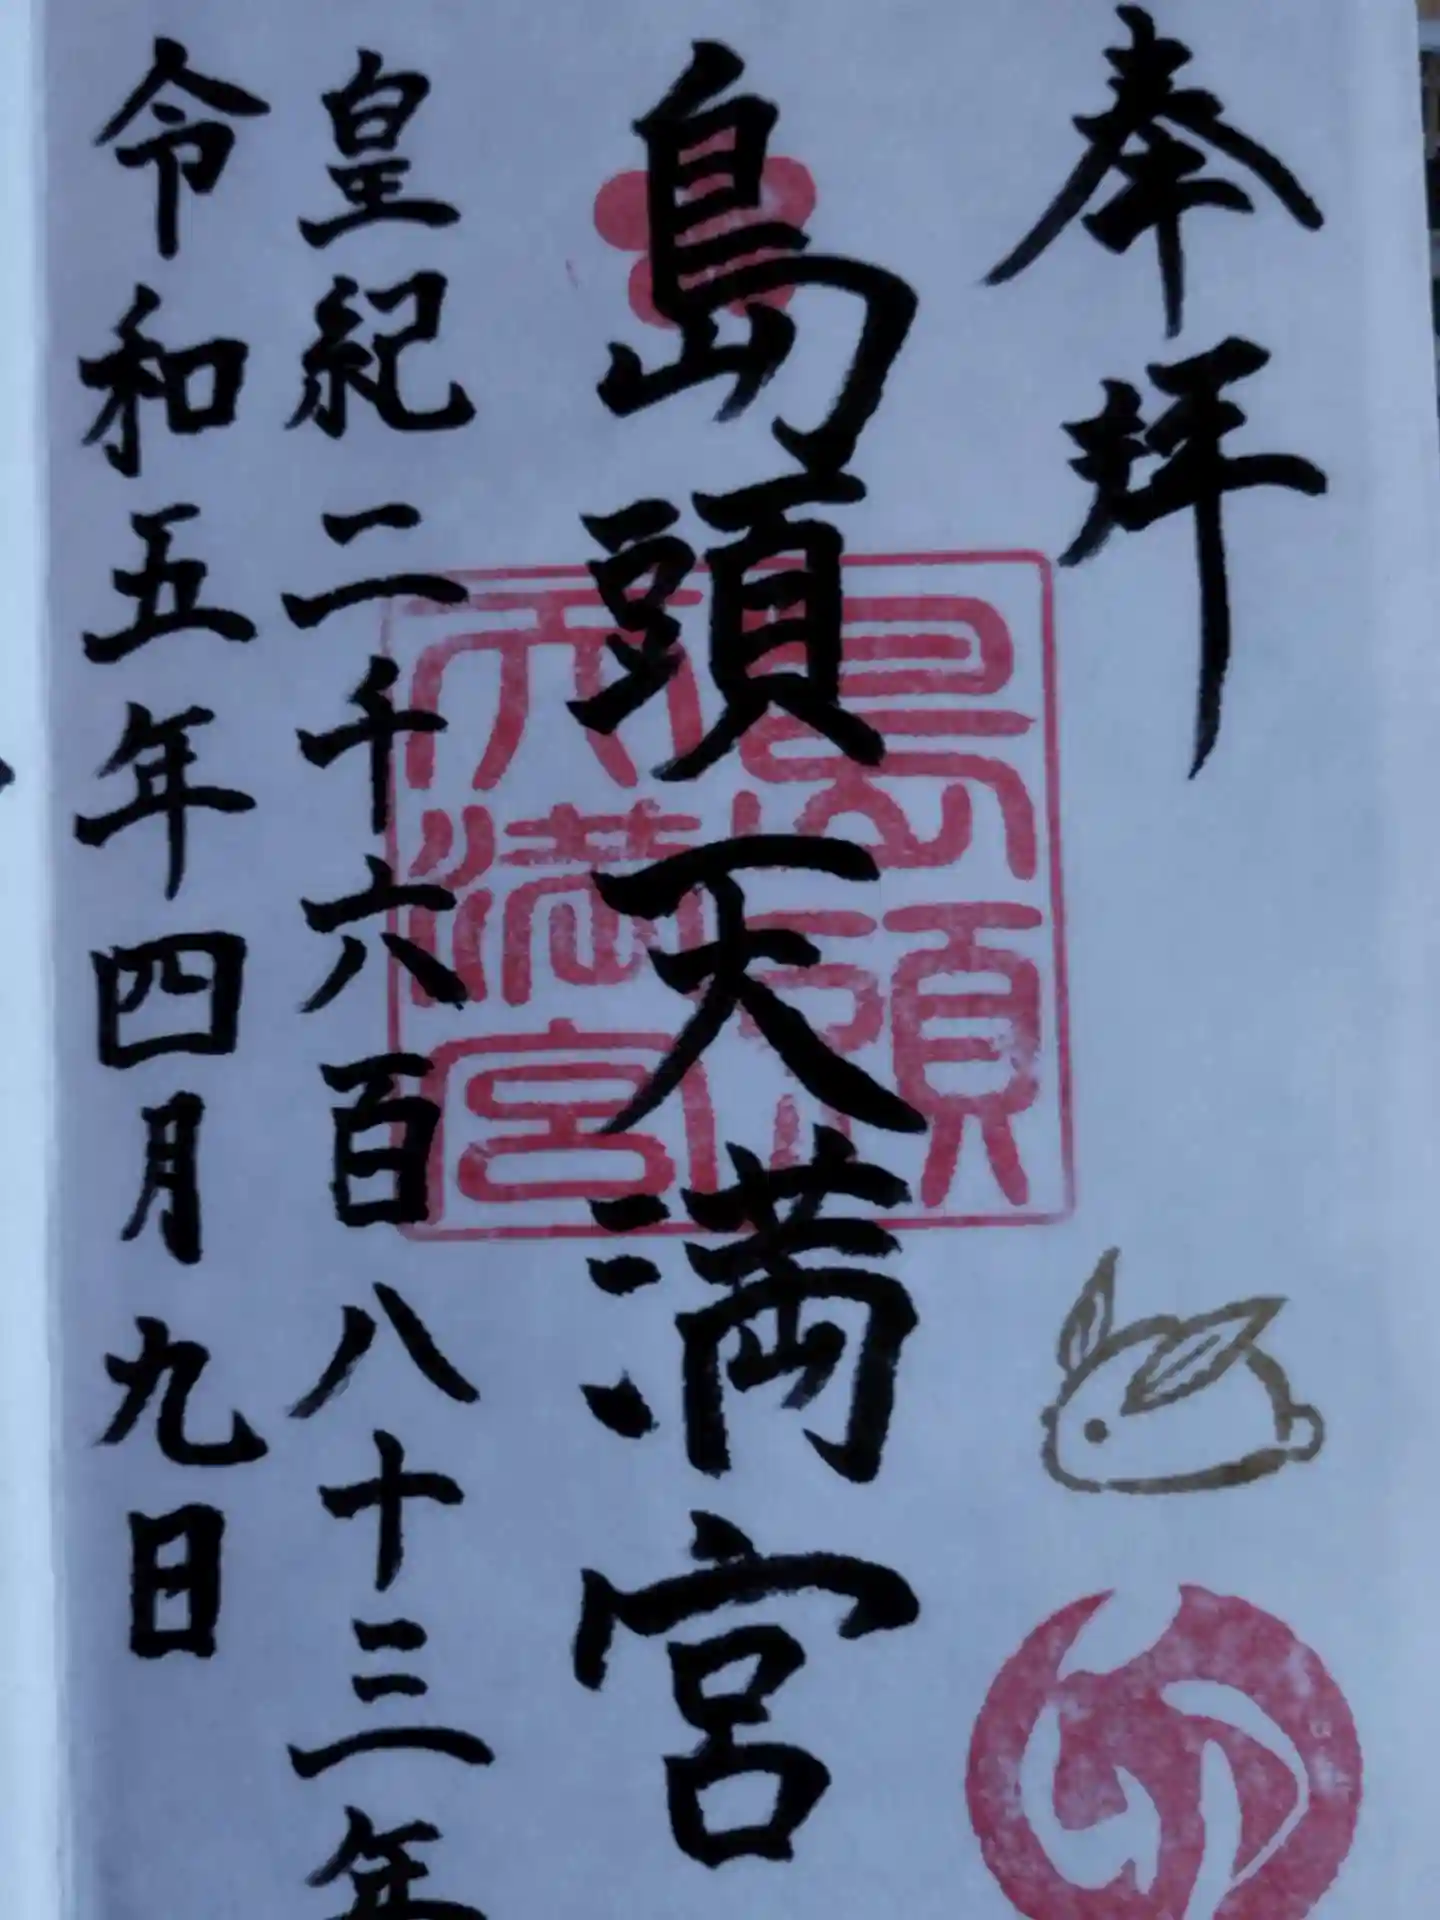 奉拝
島頭天満宮
島頭
天満宮
皇紀二千六百八十三年
令和五年四月九日
卯